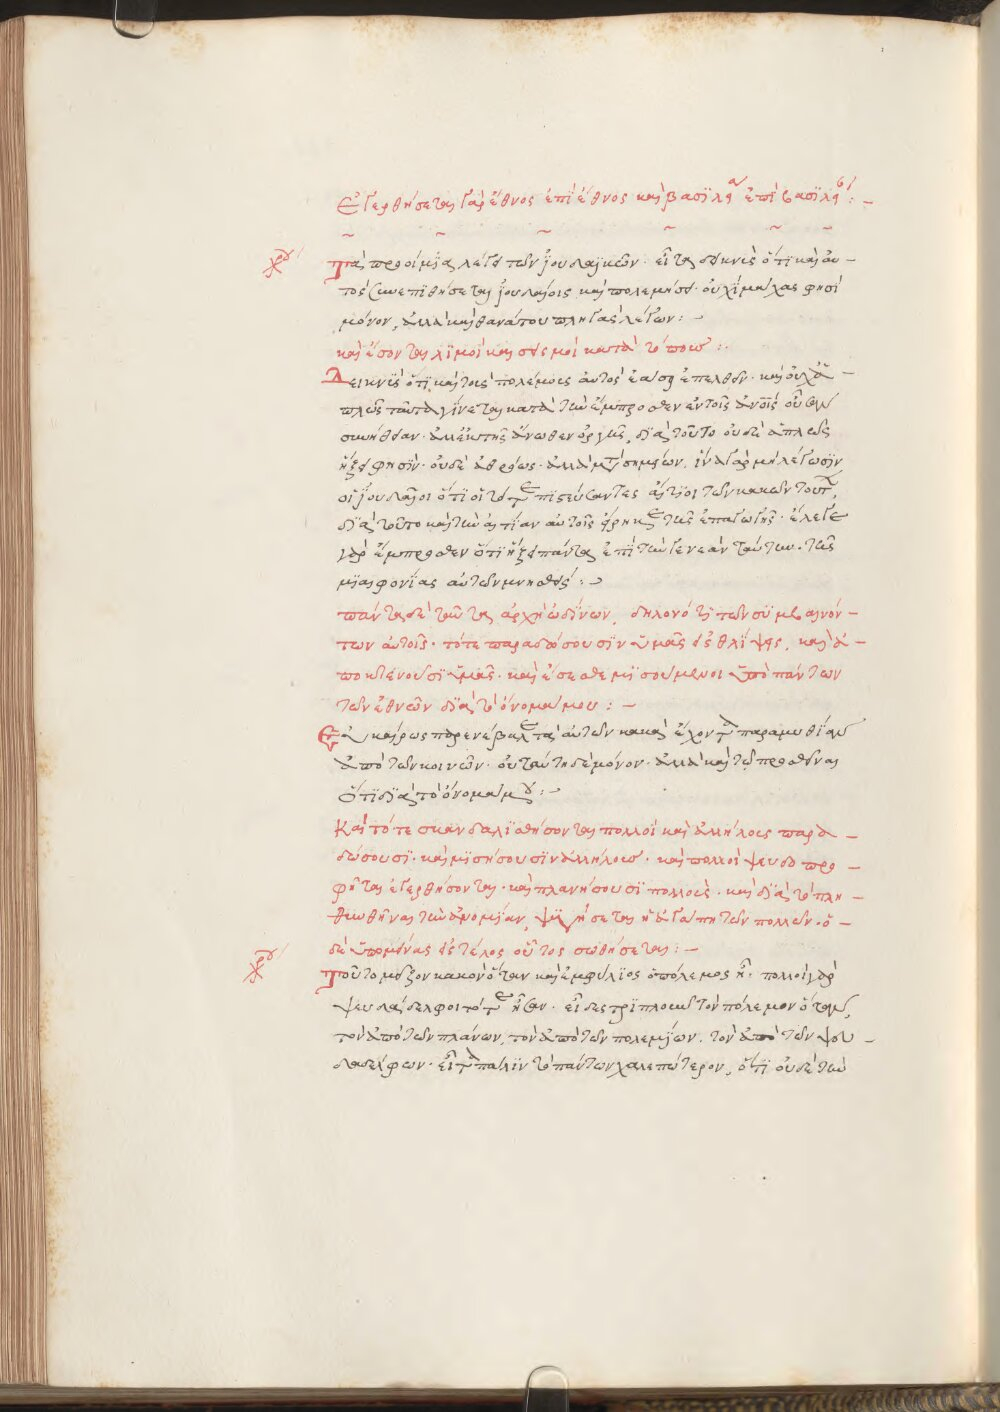 Ἐγερθήσεται γὰρ ἔθνος ἐπὶ ἔθνος καὶ βασιλεία ἐπὶ βασιλεί :-
Τὰ προοίμια λέγει τῶν ἰουδαϊκῶν. εἶτα δεικνὺς ὅτι καὶ αὐ-
τὸς συνεπιθήσεται ἰουδαίοις καὶ πολεμήσει. οὐχὶ μάχας φησὶ
μόνον, ἀλλὰ καὶ θανάτου πληγὰς λέγων :-
καὶ ἔσονται λιμοὶ καὶ σεισμοὶ κατὰ τόπους :-
Δεικνὺς ὅτι καὶ τοὺς πολέμους αὐτὸς ἐάσει ἐπελθεῖν. καὶ οὐχ ἁ-
πλῶς ταῦτα γίνεται κατὰ τὴν ἔμπροσθεν ἐν τοῖς ἀνοις οὖσαν
συνήθειαν. ἀλλ' ἐκ τῆς ἄνωθεν ὀργῆς, διὰ τοῦτο οὐδὲ ἁπλῶς
ἥξει φησὶν. οὐδὲ ἀθρόως. ἀλλὰ μετὰ σημείων. ἵνα γὰρ μὴ λέγωσιν
οἱ ἰουδαῖοι ὅτι οἱ τότε πιστεύσαντες αἴτιοι τῶν κακῶν τούτων,
διὰ τοῦτο καὶ τὴν αἰτίαν αὐτοῖς εἴρηκε τῆς ἐπαγωγῆς. ἔλεγε
γὰρ ἔμπροσθεν ὅτι ἥξει πάντα ἐπὶ τὴν γενεὰν ταύτην. τῆς
μιαιφονίας αὐτῶν μνησθεὶς :-
πάντα δὲ ταῦτα ἀρχὴ ὠδίνων, δηλονότι τῶν συμβαινόν-
των αὐτοῖς. τότε παραδώσουσιν ὑμᾶς εἰς θλίψεις, καὶ ἀ-
ποκτενοῦσι ὑμᾶς. καὶ ἔσεσθε μισούμενοι ὑπὸ πάντων
τῶν ἐθνῶν διὰ τὸ ὄνομά μου :-
Ἐν καίρως παρενέβαλε τὰ αὐτῶν κακὰ ἔχοντα παραμυθίαν
ἀπὸ τῶν κοινῶν. οὐ ταύτῃ δὲ μόνον. ἀλλὰ καὶ τῷ προσθεῖναι
ὅτι διὰ τὸ ὄνομά μου :-
Καὶ τότε σκανδαλισθήσονται πολλοὶ καὶ ἀλλήλους παρα-
δώσουσι. καὶ μισήσουσιν ἀλλήλους. καὶ πολλοὶ ψευδοπρο-
φῆται ἐγερθήσονται. καὶ πλανήσουσι πολλούς. καὶ διὰ τὸ πλη-
θυνθῆναι τὴν ἀνομίαν, ψυγήσεται ἡ ἀγάπη τῶν πολλῶν. ὁ-
δὲ ὑπομείνας εἰς τέλος οὗτος σωθήσεται :-
Τοῦτο μεῖζον κακὸν ὅταν καὶ ἐμφύλιος ὁ πόλεμος ᾖ. πολλοὶ γὰρ
ψευδάδελφοι τότε ἦσαν. εἶδες τριπλοῦν τὸν πόλεμον ὅταν,
τὸν ἀπὸ τῶν πλάνων, τὸν ἀπὸ τῶν πολεμίων. τὸν ἀπὸ τῶν ψευ-
δαδέλφων. εἶτα πάλιν τὸ πάντων χαλεπώτερον, ὅτι οὐδὲ τὴν